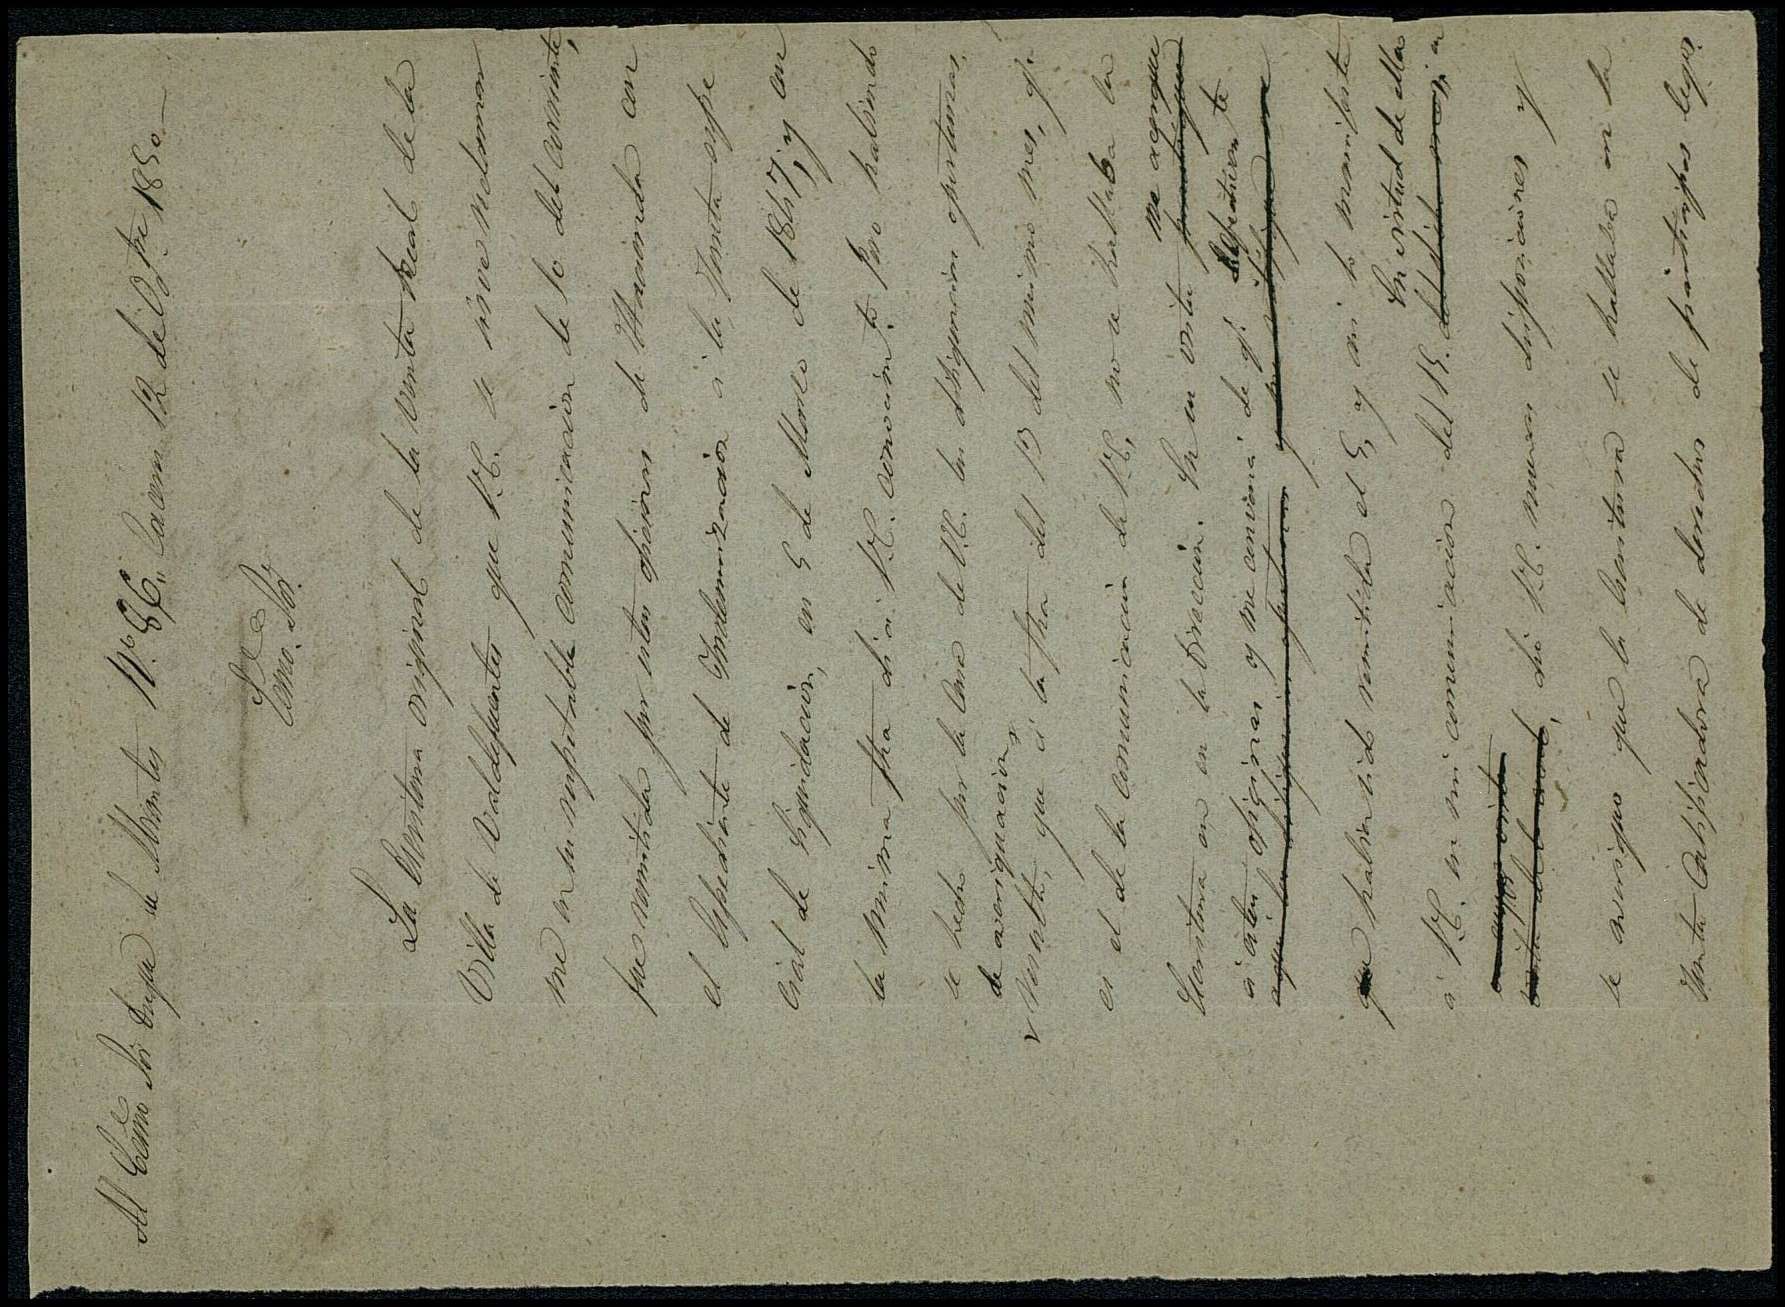 Al Excmo Sor Duque de Abrantes Nº 86,, Caceres 12 de 1850.
Excmo. Sor.
La Escritura original de la Venta Real de la
Villa de Valdefuentes que V.E. se sirve reclamar
me en su respetable comunicacion de 10 del corriente,
fue remitida por estas oficinas de Hacienda con
el Expediente de Indemnizacion á la Junta
de Liquidacion, en 5 de Marzo de 1847, y con
la misma fha dí á V.E. conocim.to Pero habiendo
se hecho por la Casa de V.E. las oportunas,
de averiguacion
resulta, que á la fha del 13 del mismo mes, qe
es el de la comunicacion de V.E. no se hallaba la
me acerque
Escritura en la Direccion. En su vista
á estas oficinas y me convencí de qe
habia sido remitida el 5, y asi lo manifesté
En virtud de ella
á V.E. en mi comunicacion del 15.
dió V.E. nuevas disposiciones y
se averiguó que la Escritura se hallaba en la
Junta Calificadora de derechos de partícipes legos